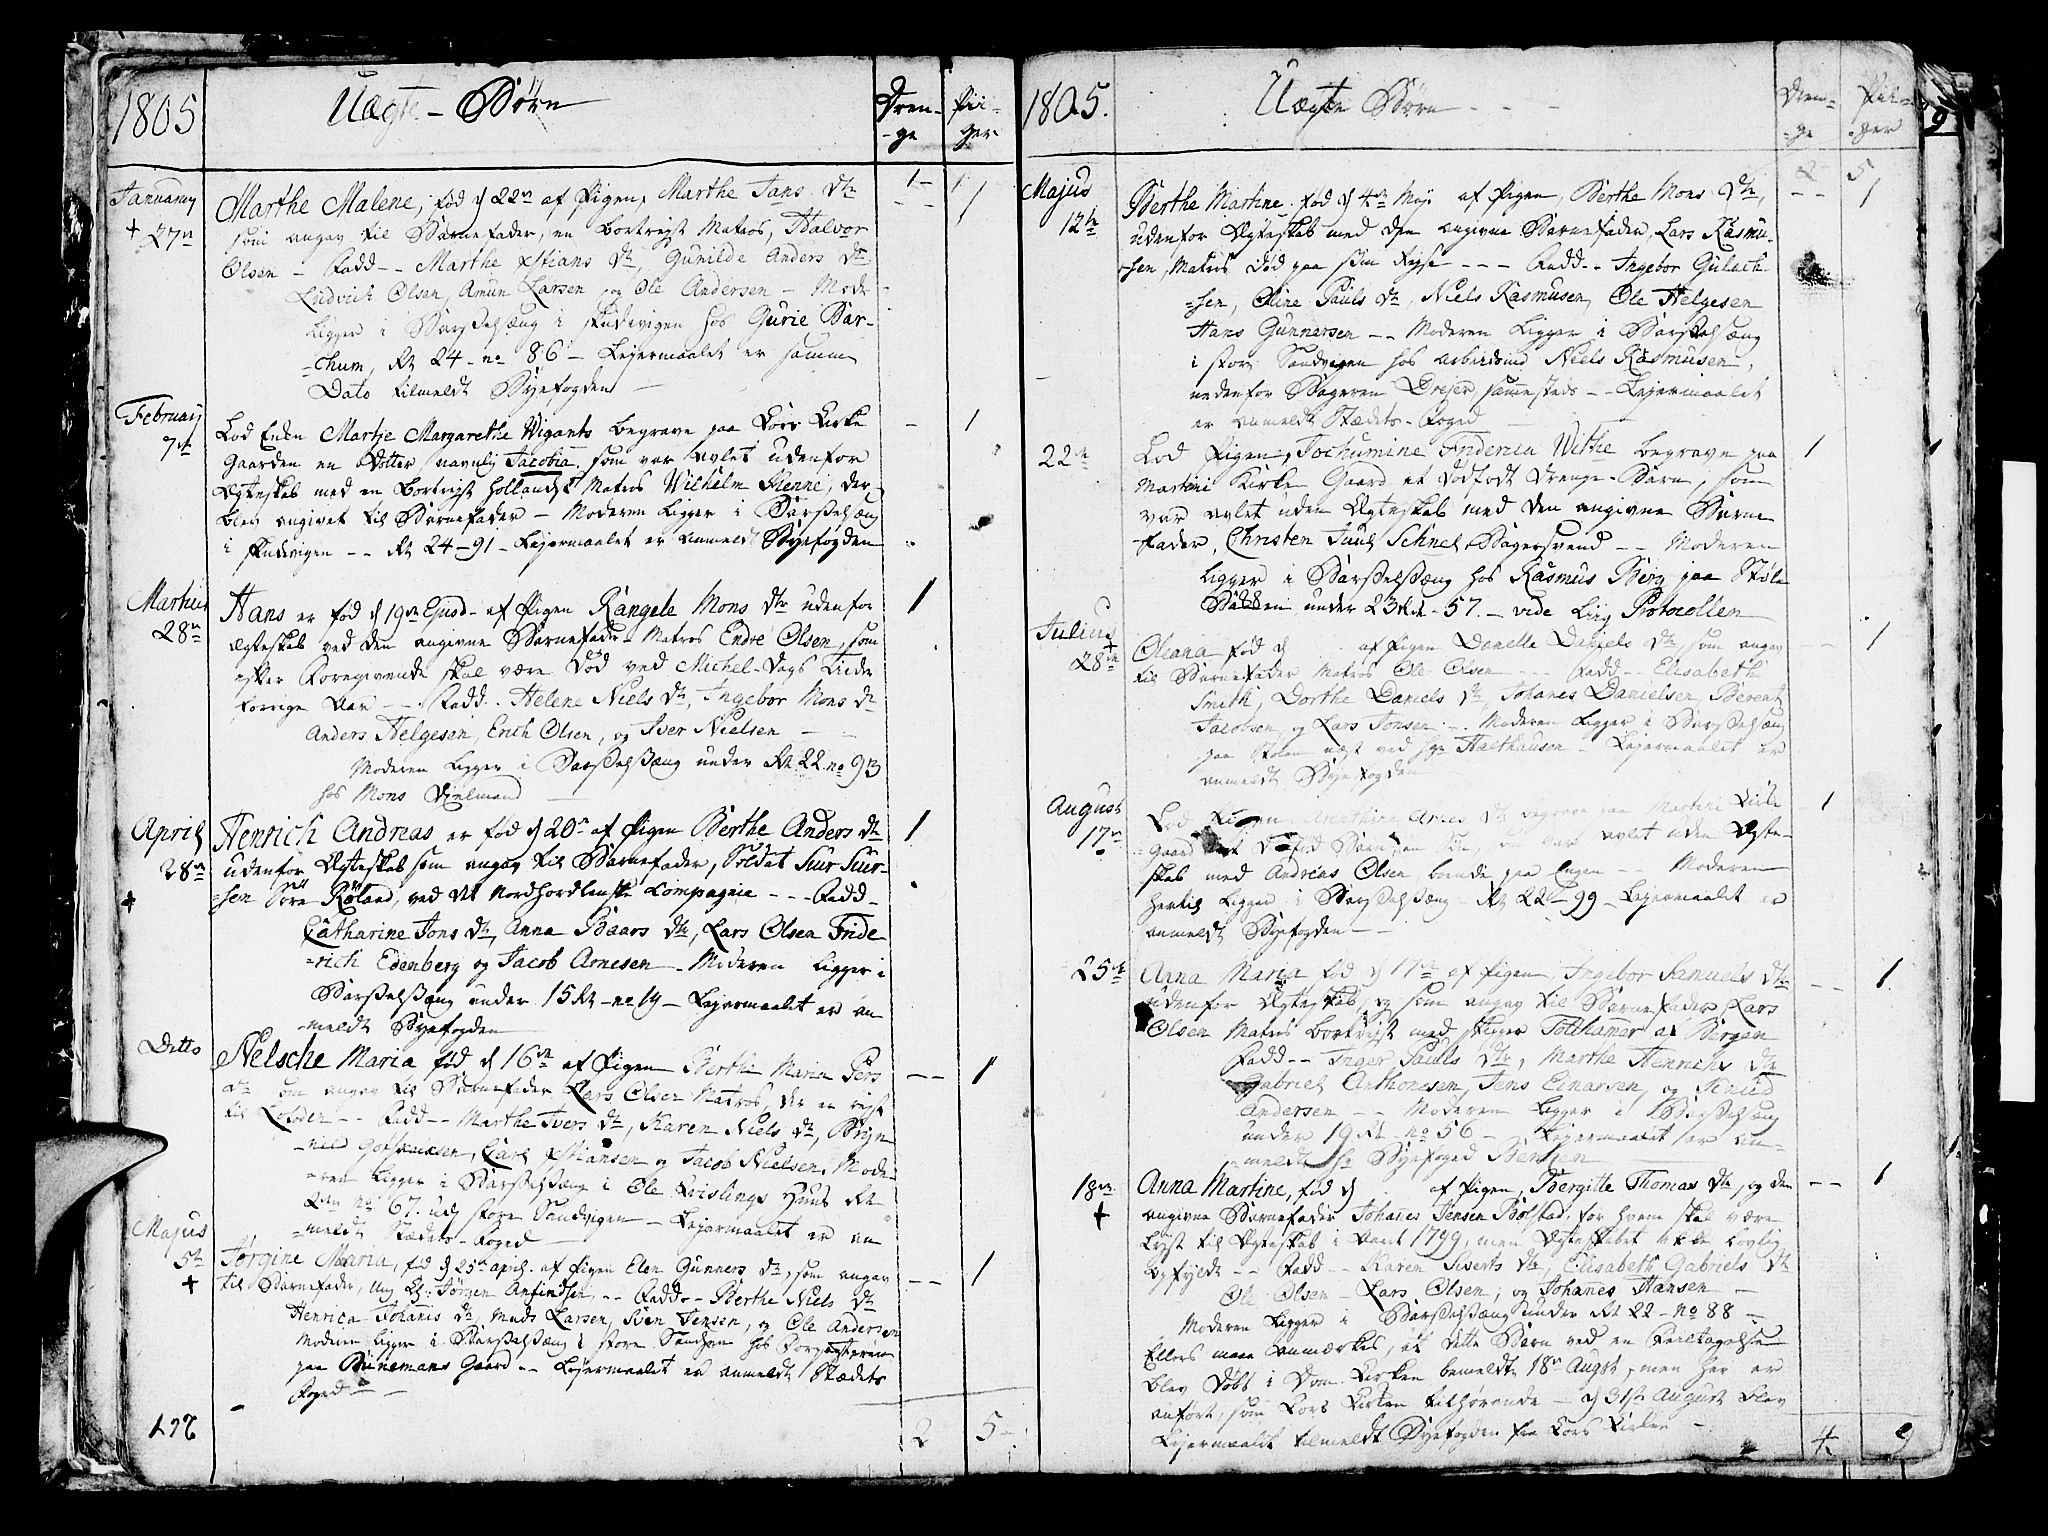 1805
Uægte-Børn
Dren-
-ge
Pii-
ger
January
+ 27de
Marthe Malene, fød d 22de af Pigen, Marthe Jans Dtr
som angav til Barnefader, en bortreyst Matros, Halvor
Olsen - Fadd-- Marthe Xstians Dtr, Gunilde Anders Dtr
Ludvich Olsen, Amun Larsen, og Ole Andersen - Mode-
ligger i Barselsæng i Skudevigen hos Gurie Bar-
=chum, Rt 24 - no 86 - Lejermaalet er samme
Dato tilmeldt Byefogden -
1
February
7de
Lod Enken Martje Margarethe Wigants begrave paa Kors Kirke
Gaarden en Dotter navnlig Jacobia, som var avlet udenfor
Ægteskab med en bortreyst hollandsk Matros Wilhelm Fienne, der
blev angivet til Barnefader - Moderen ligger i Barselsæng
i Skudevigen -- Rt 24-91 - Lejermaalet er anmeldt Byefogden
1
Martius
28de
Hans er fød d 19de Ejusd- af Pigen Rangele Mons Dtr udenfor
Ægteskab ved den angivne Barnefader Matros Endre Olsen, som
efter Foregivende skal være død ved Michel-Dags Tiide
forrige Aar --- Fadd.. Helene Niels Dtr, Ingebor Mons Dtr
Anders Helgesen, Erich Olsen, og Iver Nielsen
Moderen ligger i Barselsæng under Rt 22 no 93
hos Mons
1
April
28de
+
Henrich Andreas er fød d 20de af Pigen Berthe Anders Dtr
udenfor Ægteskab som angav til Barnefader, Soldat Siur Siur-
=sen Røland, ved det Nordhordlenske Compagnie --- Fadd-
Catharine Jons Dtr, Anna Baars Dtr, Lars Olsen Fride
=rich Edenberg og Jacob Arnesen - Moderen ligger i
Barselsæng under 15 Rt - no 14 - Lejermaalet er an
-meldt Byefogden
1
Ditto
Nelsche Maria fød d 16de af Pigen Berthe Maria Pers
Dtr som angav til Barnefader Lars Olsen Matros, der er reyst
til -- Fadd-- Marthe Ivers Dtr, Karen Niels Dtr, Bryn
Carl Xstiansen og Jacob Nielsen. Mode-
-ren ligger i Barselsæng i Ole Qvislings Huus Rt
no 67. ved store Sandvigen - Lejermaalet er an
-meldt Stædets-Foged
1
Majus
5te
+
Jørgine Maria, fød d 25de april. af Pigen Elen Gunners Dtr, som angav
til Barnefader, Ung K: Jørgen Anfindsen -- Fadd-- Berthe Niels Dtr
Henrica Johanis Dtr, Mads Larsen, Sven Jensen, og Ole Andersen
Moderen ligger i Barselsæng i store Sandvigen hos
paa Bünemans Gaard -- Lejermaalet er anmeldt Stædets
Foged --
1
2 5
1805.
Uægte Børn - - -
Dren-
-ge
Pii-
-ger
2 5
Majus
12te
Berthe Martine. fød d 4de Maji af Pigen, Berthe Mons Dtr,
udenfor Ægteskab med den angivne Barnefader, Lars Rasmu-
-sen, Matros død paa sin Reyse --- Fadd-- Ingebor Gulach-
=sen, Oline Pauls Dtr, Niels Rasmusen, Ole Helgesen
Hans Gunnersen -- Moderen ligger i Barselsæng
i store Sandvigen hos Arbeidsmd Niels Rasmusen,
nedenfor Bageren Drejer sammesteds -- Lejermaalet
er anmeldt Stædets-Foged
1
22de
Lod Pigen, Jochumine Friderica Withe begrave paa
Martini Kirke Gaard et dødfødt Drenge-Barn, som
var avlet uden Ægteskab med den angivne Barne
-fader, Christen Juul Schnel Bagersvend -- Moderen
ligger i Barselsæng hos Rasmus Berg paa Støle
under 23 Rt - 57. - vide Liig Protocollen
1
Julius
28de
Oleana fød d af Pigen Danelle Daniels Dtr som angav
til Barnefader Matros Ole Olsen -- Fadd-- Elisabeth
Smith, Dorthe Daniels Dtr, Johanes Danielsen, Berent
Jacobsen, og Lars Jonsen -- Moderen ligger i Barselsæng
paa Stølen næst ved Sgr Halthausen - Lejermaalet er
anmeldt Byefogden
1
August
17de
Lod Pigen Dtr begrave paa Martini Kirke
Gaard et dødfød Barn, en Søn, som var avlet uden Ægte-
skab med Andreas Olsen, boende paa Engen -- Moderen
hertil ligger i Barselsæng - Rt 22 - 99 - Lejermaalet er
anmeldt Byefogden --
1
25de
Anna Maria fød d 17de af Pigen, Ingebor Samuels Dtr
udenfor Ægteskab, og som angav til Barnefader Lars
Olsen Matros bortreyst med Skipper Tolthamer af Bergen
Fadd-- Inger Pauls Dtr, Marthe Henrichs Dtr
Gabriel Anthonesen, Jens Einarsen, og
Andersen -- Moderen ligger i Barselsæng
under 19 Rt - no 56 - Lejermaalet er an-
-meldt Hr Byefoged Bentzen
1
18de
+
Anna Martine, fød d af Pigen, Bergitte Thomas Dtr, og den
angivne Barnefader Johanes Jensen Bolstad, for hvem skal være
lyst til Ægteskab i Aaret 1799, men Ægteskabet ikke lovlig
opfyldt -- Fadd-- Karen Siverts Dtr, Elisabeth Gabriels Dtr
Ole Olsen - Lars Olsen, og Johanes Hansen -
Moderen ligger i Barselsæng under Rt 22 - no 88 -
Ellers maae anmærkes, at dette Barn ved en Feiltagelse
blev døbt i Dom-Kirken bemeldte 18de Augst, men her er
anført, som Kors Kirken tilhørende - d 31te August blev
Lejermaalet tilmeldt Byefogden fra Kors Kirken -
1
4 9